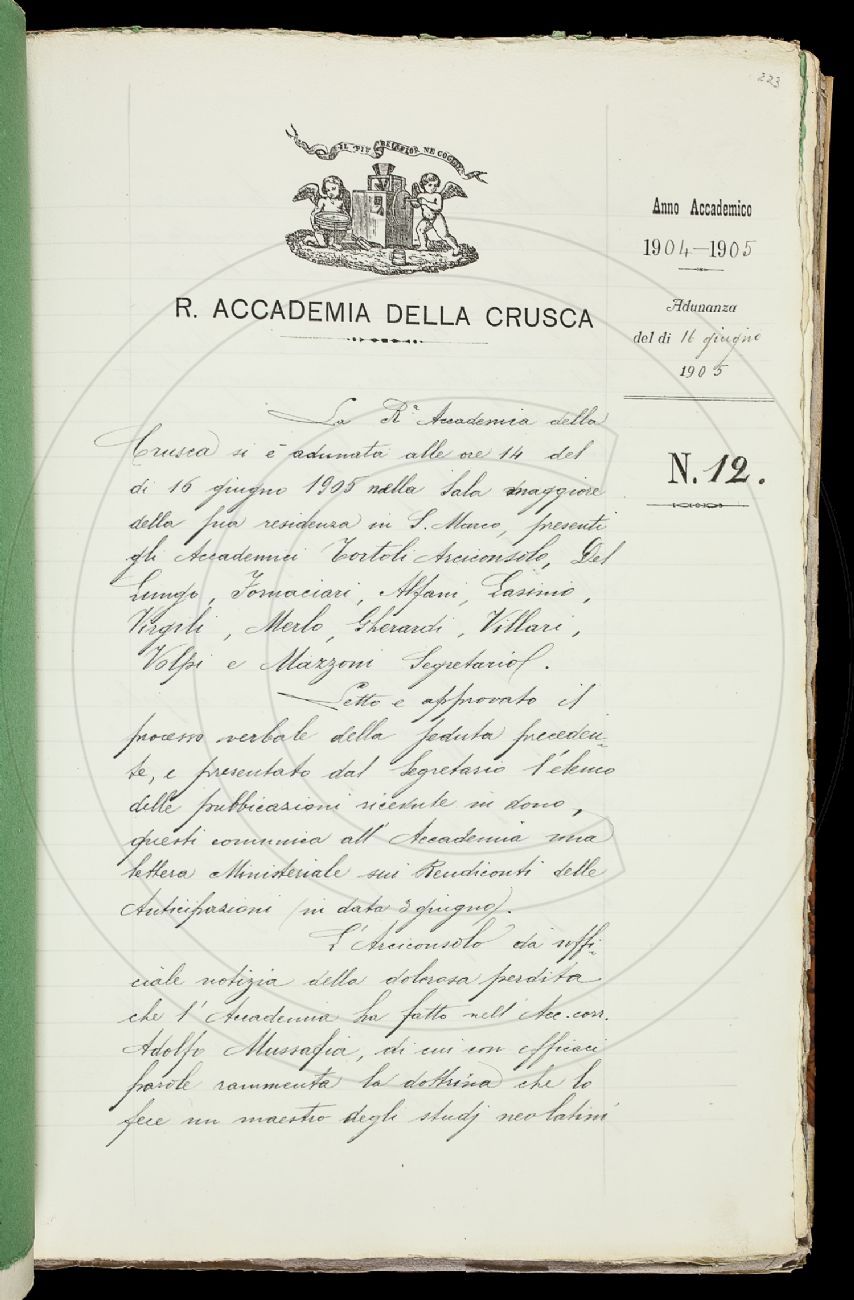 223
IL PIÙ BEL FIOR NE COGLIE
R. ACCADEMIA DELLA CRUSCA
Anno Accademico
1904-1905
Adunanza
del dì 16 giugno
1905
N. 12.
La R.a Accademia della
Crusca si è adunata alle ore 14 del
dì 16 giugno 1905 nella Sala maggiore
della sua residenza in S. Marco, presenti
gli Accademici Tortoli Arciconsolo, Del
Lungo, Fornaciari, Alfani, Lasinio,
Virgili, Merlo, Gherardi, Villari,
Volpi e Mazzoni Segretario.
Letto e approvato il
processo verbale della seduta preceden-
te, e presentato dal Segretario l'elenco
delle pubblicazioni ricevute in dono,
questi comunica all'Accademia una
lettera Ministeriale sui Rendiconti delle
Anticipazioni (in data 3 giugno).
L'Arciconsolo dà l'uffi-
ciale notizia della dolorosa perdita
che l'Accademia ha fatto nell'Acc. corr.
Adolfo Mussafia, di cui con efficaci
parole rammenta la dottrina che lo
fece un maestro degli studj neolatini